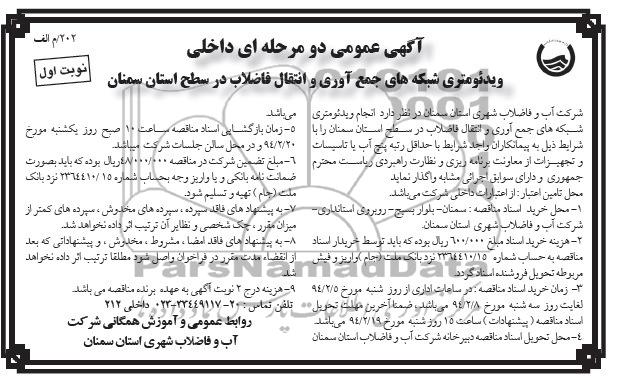 ۲۰۲/م الف
آگهی عمومی دو مرحله ای داخلی
نوبت اول
ویدئومتری شبکه های جمع آوری و انتقال فاضلاب در سطح استان سمنان
شرکت آب و فاضلاب شهری استان سمنان در نظر دارد انجام ویدئومتری
شبکه های جمع آوری و انتقال فاضلاب در سطح استان سمنان را با
شرایط ذیل به پیمانکاران واجد شرایط با حداقل رتبه پنج آب یا تاسیسات
و تجهیزات از معاونت برنامه ریزی و نظارت راهبردی ریاست محترم
جمهوری و دارای سوابق اجرائی مشابه واگذار نماید
محل تامین اعتبار : از اعتبارات داخلی شرکت می‌باشد.
۱- محل خرید اسناد مناقصه : سمنان- بلوار بسیج- روبروی استانداری-
شرکت آب و فاضلاب شهری استان سمنان.
۲-هزینه خرید اسناد مبلغ ۶۰۰/۰۰۰ ریال بوده که باید توسط خریدار اسناد
مناقصه به حساب شماره ۲۳۶۴۴۱۰/۱۵ نزد بانک ملت (جام )واریز و فیش
مربوطه تحویل فروشنده اسناد گردد.
۳- زمان خرید اسناد مناقصه : در ساعات اداری از روز شنبه مورخ ۹۴/۲/۵
لغایت روز سه شنبه مورخ ۹۴/۲/۸ می‌باشد، ضمنا آخرین مهلت تحویل
اسناد مناقصه ( پیشنهادات ) ساعت ۱۵ روز شنبه مورخ ۹۴/۲/۱۹ می‌باشد.
۴- محل تحویل اسناد مناقصه دبیرخانه شرکت آب و فاضلاب استان سمنان
می‌باشد.
۵-زمان بازگشایی اسناد مناقصه ساعت ۱۰ صبح روز یکشنبه مورخ
۹۴/۲/۲۰ و در محل سالن جلسات شرکت میباشد.
۶-مبلغ تضمین شرکت در مناقصه ۴۸/۰۰۰/۰۰۰ریال بوده که باید بصورت
ضمانت نامه بانکی و یا واریز وجه بحساب شماره ۲۳۶۴۴۱۰/۱۵ نزد بانک
ملت (جام ) تهیه و تسلیم شود.
۷-به پیشنهاد های فاقد سپرده ، سپرده های مخدوش ، سپرده های کمتر از
میزان مقرر ، چک شخصی و نظایر آن ترتیب اثر داده نخواهد شد.
۸-به پیشنهاد های فاقد امضا ، مشروط ، مخدوش ، و پیشنهاداتی که بعد
از انقضاء مدت مقرر در فراخوان واصل شود مطلقا ترتیب اثر داده نخواهد
شد.
۹-هزینه درج ۲ نوبت آگهی به عهده برنده مناقصه می باشد.
تلفن تماس : ۲۰-۳۳۴۴۹۱۱۷-۰۲۳ داخلی ۲۱۲
روابط عمومی و آموزش همگانی شرکت
آب و فاضلاب شهری استان سمنان
ParsNamadData